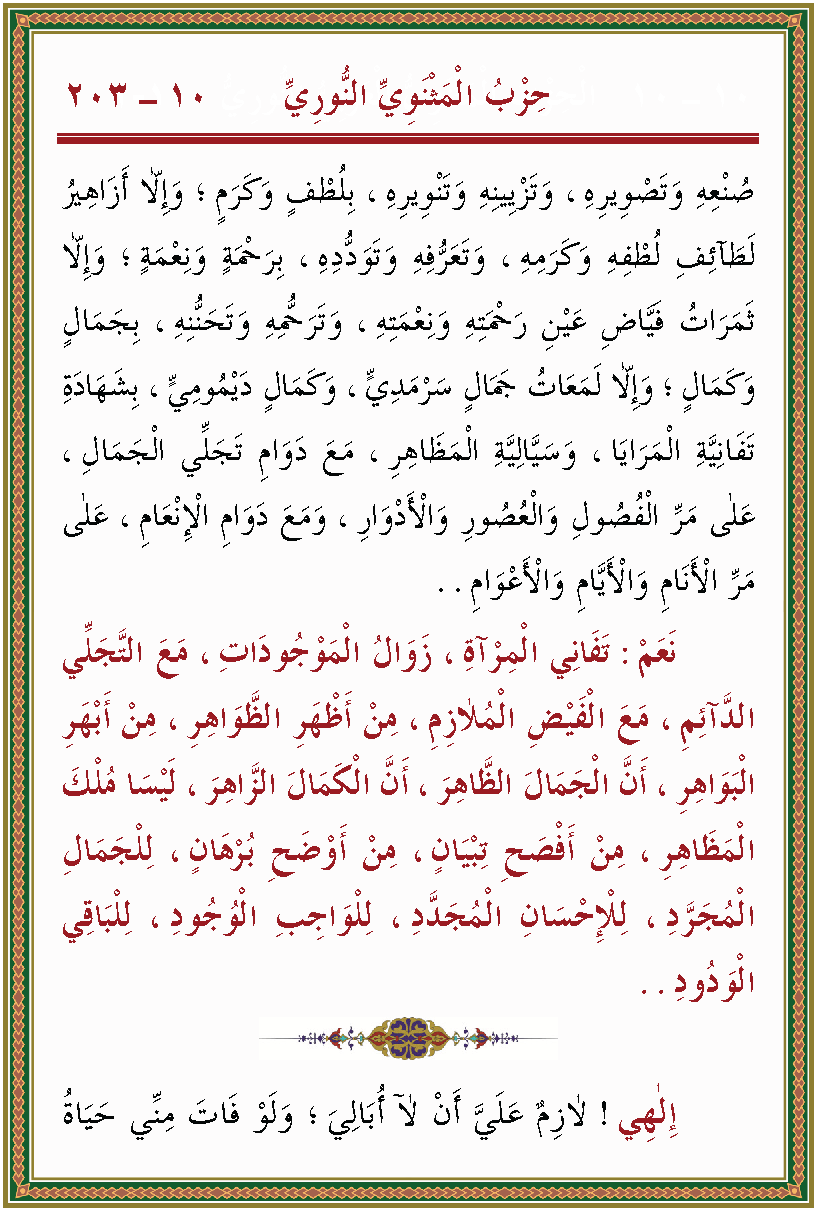 حِزْبُ الْمَثْنَوِيِّ النُّورِيِّ ١٠ ـ ٢٠٣
صُنْعِهِ وَتَصْوِيرِهِ ، وَتَزْيِينِهِ وَتَنْوِيرِهِ ، بِلُطْفٍ وَكَرَمٍ ؛ وَإِلَّا أَزَاهِيرُ
لَطَآئِفِ لُطْفِهِ وَكَرَمِهِ ، وَتَعَرُّفِهِ وَتَوَدُّدِهِ ، بِرَحْمَةٍ وَنِعْمَةٍ ؛ وَإِلَّا
ثَمَرَاتُ فَيَّاضِ عَيْنِ رَحْمَتِهِ وَنِعْمَتِهِ ، وَتَرَحُّمِهِ وَتَحَنُّنِهِ ، بِجَمَالٍ
وَكَمَالٍ ؛ وَإِلَّا لَمَعَاتُ جَمَالٍ سَرْمَدِيٍّ ، وَكَمَالٍ دَيْمُومِيٍّ ، بِشَهَادَةِ
تَفَانِيَّةِ الْمَرَايَا ، وَسَيَّالِيَّةِ الْمَظَاهِرِ ، مَعَ دَوَامِ تَجَلِّي الْجَمَالِ ،
عَلٰى مَرِّ الْفُصُولِ وَالْعُصُورِ وَالْأَدْوَارِ ، وَمَعَ دَوَامِ الْإِنْعَامِ ، عَلٰى
مَرِّ الْأَنَامِ وَالْأَيَّامِ وَالْأَعْوَامِ . .
نَعَمْ : تَفَانِي الْمِرْآةِ ، زَوَالُ الْمَوْجُودَاتِ ، مَعَ التَّجَلِّي
الدَّآئِمِ ، مَعَ الْفَيْضِ الْمُلَازِمِ ، مِنْ أَظْهَرِ الظَّوَاهِرِ ، مِنْ أَبْهَرِ
الْبَوَاهِرِ ، أَنَّ الْجَمَالَ الظَّاهِرَ ، أَنَّ الْكَمَالَ الزَّاهِرَ ، لَيْسَا مُلْكَ
الْمَظَاهِرِ ، مِنْ أَفْصَحِ تِبْيَانٍ ، مِنْ أَوْضَحِ بُرْهَانٍ ، لِلْجَمَالِ
الْمُجَرَّدِ ، لِلْإِحْسَانِ الْمُجَدَّدِ ، لِلْوَاجِبِ الْوُجُودِ ، لِلْبَاقِي
الْوَدُودِ . .
إِلٰهِي ! لَازِمٌ عَلَيَّ أَنْ لَآ أُبَالِيَ ؛ وَلَوْ فَاتَ مِنِّي حَيَاةُ